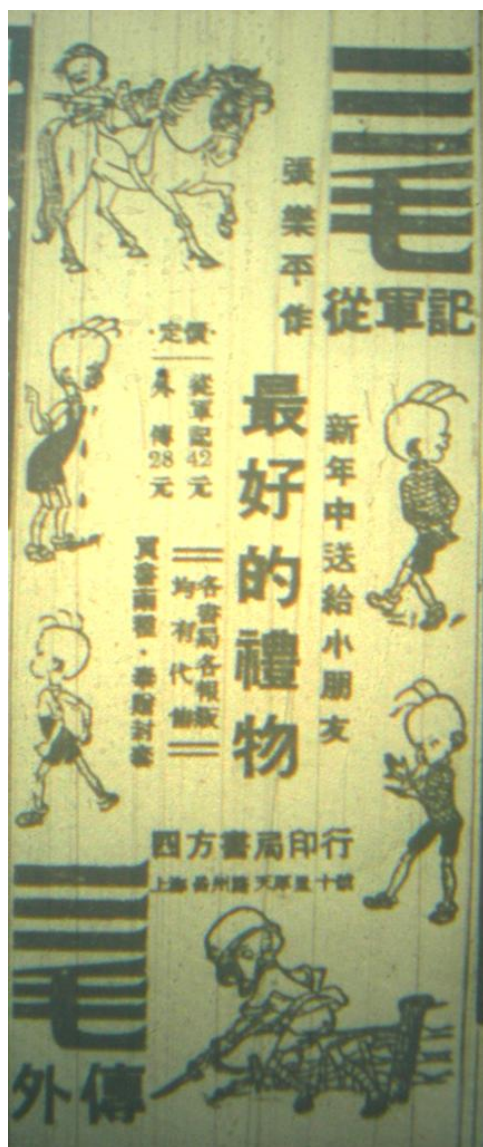 三毛
從軍記
張樂平作
新年中送給小朋友
最好的禮物
·定價·
從軍記42元
外傳28元
各書局各報販
均有代售
買書兩種·奉贈封套
四方書局印行
上海岳州路天厚里十號
三毛
外傳